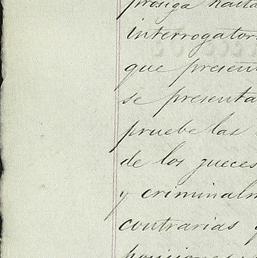 prosiga hasta
interrogatori
que presen
se presenta
pruebe las
de los jueces
y criminalm
contrarias y
posiciones